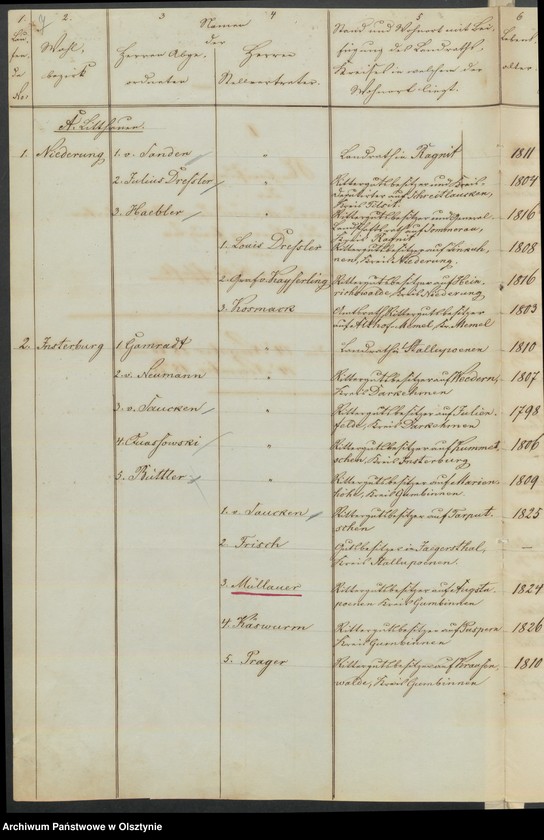 1. 2. 3 4 5 6
Namen
der
Wahl-
bezirk
Herren Abge-
ordneten
Herren
Stellvertreter.
Stand und Wohnort mit Bei-
fügung des Landraths-
Kreises in welchem der
Wohnort liegt.
Lebens-
alter.
A. Litthauen.
1. Niederung 1. v. Sanden " Landrath in Ragnit 1811
2. Julius Dressler " Rittergutsbesitzer und Kreis-
Deputirter auf Schreitlaucken,
Kreis Tilsit 1804
3. Haebler " Rittergutsbesitzer und General-
Landschaftsrath auf Sommerau,
Kreis Ragnit 1816
1. Louis Dressler Rittergutsbesitzer auf
Kreis Niederung. 1808
2. Graf v. Kayserling Rittergutsbesitzer auf Hein-
richswalde, Kreis Niederung 1816
3. Kormack Amtsrath, Rittergutsbesitzer
auf Althof-Memel, Kr. Memel 1803
2. Insterburg 1. Gamradt " Landrath in Stallupoenen 1810
2. v. Neumann " Rittergutsbesitzer auf
Kreis Darkehmen 1807
3. v. Saucken " Rittergutsbesitzer auf Julien-
felde, Kreis Darkehmen 1798
4. Quassowski " Rittergutsbesitzer auf
Kreis Insterburg 1806
5. Büttler " Rittergutsbesitzer auf Marien-
höhe, Kreis Gumbinnen. 1809
1. v. Saucken Rittergutsbesitzer auf Tarput-
schen 1825
2. Frisch Gutsbesitzer in Jaegersthal,
Kreis Stallupoenen. —
3. Müllauer Rittergutsbesitzer auf Augstu-
poenen Kreis Gumbinnen 1824
4. Käswurm Rittergutsbesitzer auf Puspern
Kreis Gumbinnen 1826
5. Prager Rittergutsbesitzer auf
walde, Kreis Gumbinnen 1810
Archiwum Państwowe w Olsztynie